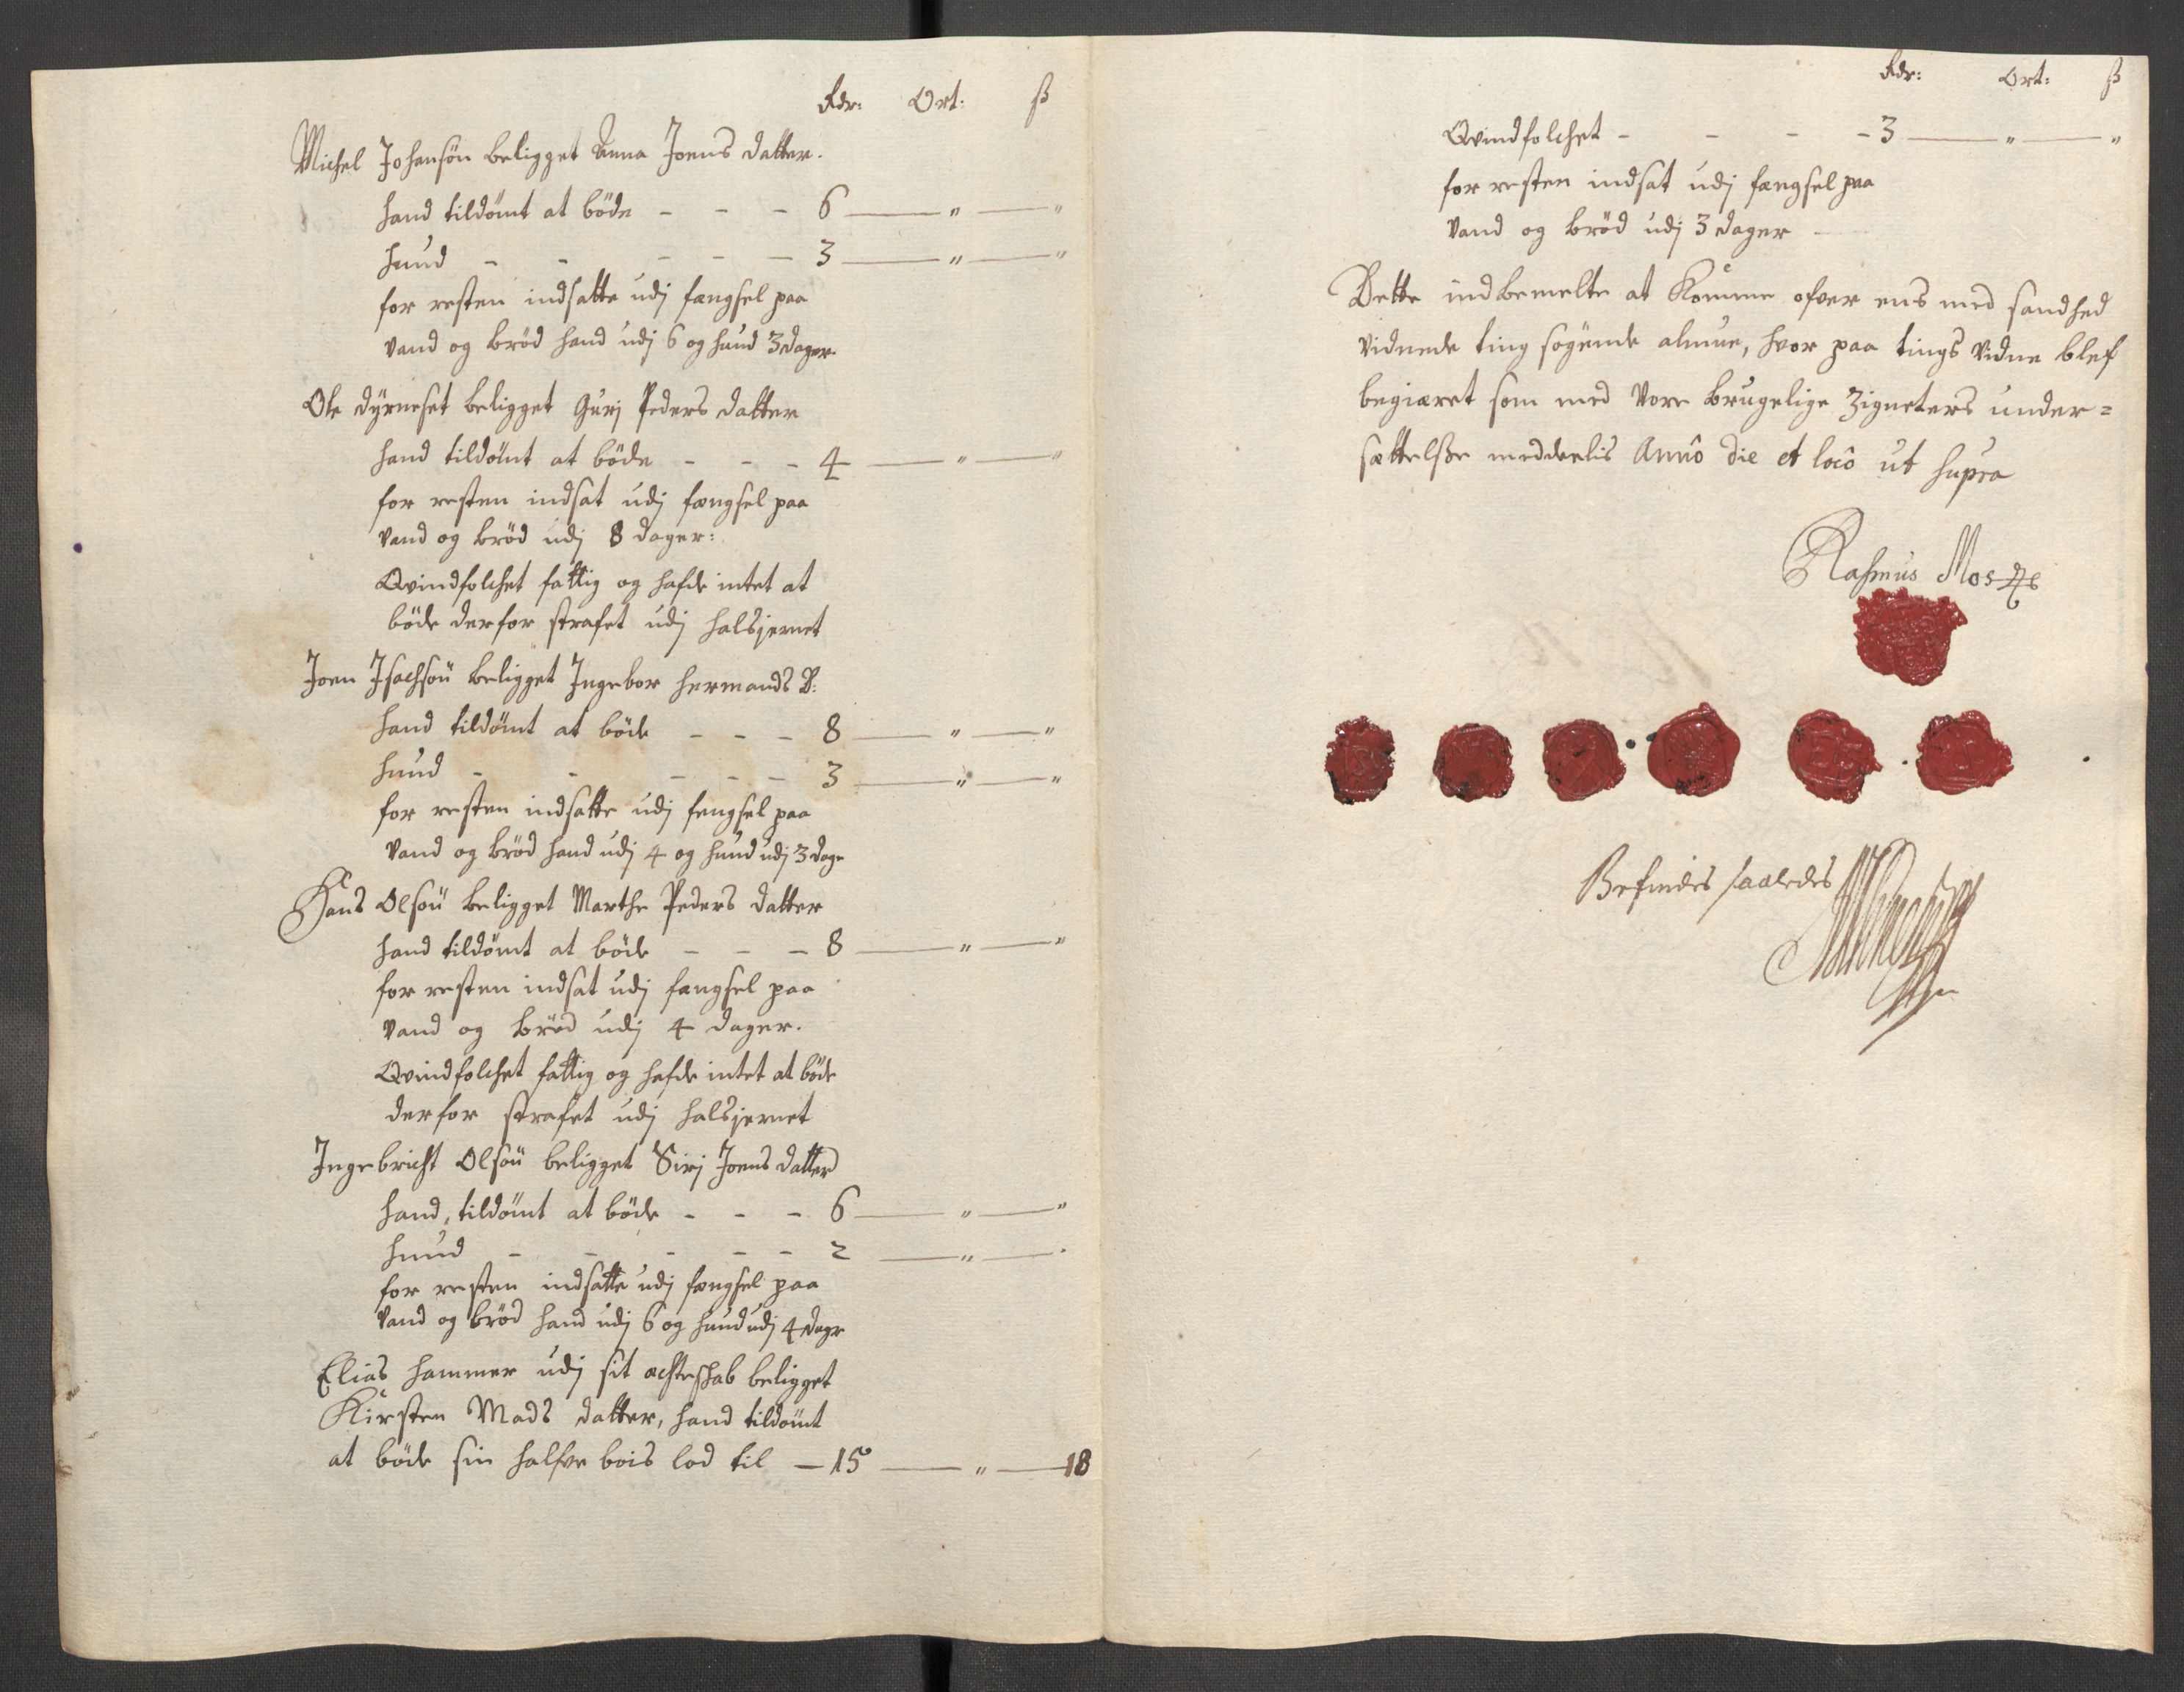 Rdr: Ort: ß
Michel Johansön beligget Anna Joens datter.
hand tildömt at böde - - - 6 — " — "
hund - - - - - 3 — " — "
for resten indsatte udj fængsel paa
vand og bröd hand udj 6 og hund 3 dager.
Ole dyrneset beligget Gurj Peders datter
hand tildömt at böde - - - 4 — " — "
for resten indsat udj fængsel paa
vand og bröd udj 8 dager:
Qvindfolchet fattig og hafde intet at
böde derfor strafet udj halsjernet
Joen Isachsön beligget Ingebor Hermands D:
hand tildömt at böde - - - 8 — " — "
hund - - - - - 3 — " — "
for resten indsatte udj fengsel paa
vand og bröd hand udj 4 og hund udj 3 dage
Hans Olsön beligget Marthe Peders datter
hand tildömt at böde - - - 8 — " — "
for resten indsat udj fængsel paa
vand og bröd udj 4 dager.
Qvindfolchet fattig og hafde intet at böde
derfor strafet udj halsjernet
Ingebricht Olsön beligget Sirj Joens datter
hand, tildömt at böde - - - 6 — " — "
hund - - - - - 2 — " — "
for resten indsatte udj fængsel paa
vand og bröd hand udj 6 og hund udj 4 dage
Elias Hammer udj sit echteschab beligget
Kirsten Mads datter, hand tildömt
at böde sin halfve bois lod til — 15 — " — 18
Rdr: Ort: ß
Qvindfolchet - - - - 3 — " — "
for resten indsat udj fængsel paa
vand og bröd udj 3 dager
Dette indbemelte at Komme ofver ens med sandhed
vidnede ting sögende almue, hvor paa tings vidne blef
begiæret som med vore brugelige Zigneters under=
sættelsse meddeelis Anno die et loco ut supra
Rasmus
Befindes saaledes